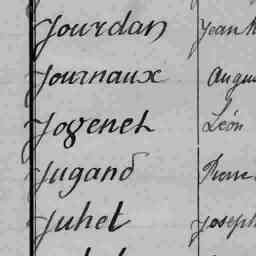 Jourdan Jean
Journaux Augu
Jogenet Léon
Jugand Pierre
Juhel Joseph